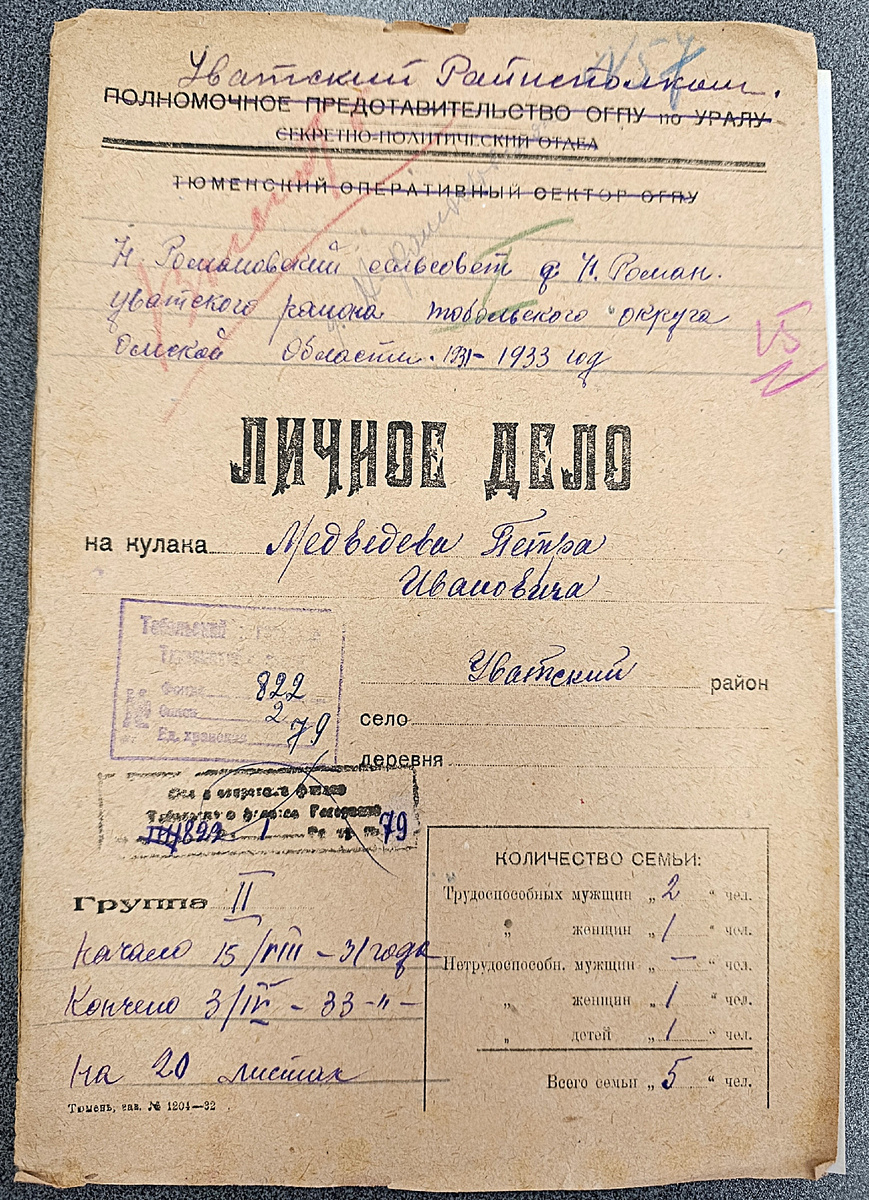 № 57
Уватский Райисполком.
ПОЛНОМОЧНОЕ ПРЕДСТАВИТЕЛЬСТВО ОГПУ по УРАЛУ
СЕКРЕТНО-ПОЛИТИЧЕСКИЙ ОТДЕЛ
ТЮМЕНСКИЙ ОПЕРАТИВНЫЙ СЕКТОР ОГПУ
Н. Романовский сельсовет д. Н. Роман.
Уватского района Тобольского округа
Омской Области. 1931-1933 год
ЛИЧНОЕ ДЕЛО
на кулака Медведева Петра
Ивановича
Тобольский
Фонд 822
Опись 2
Ед. хранения 79
Уватский район
село
деревня
822 1 79
Группа II
Начало 15/VIII - 31 года
Кончено 3/IV - 33 -"-
На 20 листах
Тюмень, зак. № 1204—32
КОЛИЧЕСТВО СЕМЬИ:
Трудоспособных мужчин „ 2 “ чел.
„ женщин „ 1 “ чел.
Нетрудоспособн. мужчин „ — “ чел.
„ женщин „ 1 “ чел.
„ детей „ 1 “ чел.
Всего семьи „ 5 “ чел.